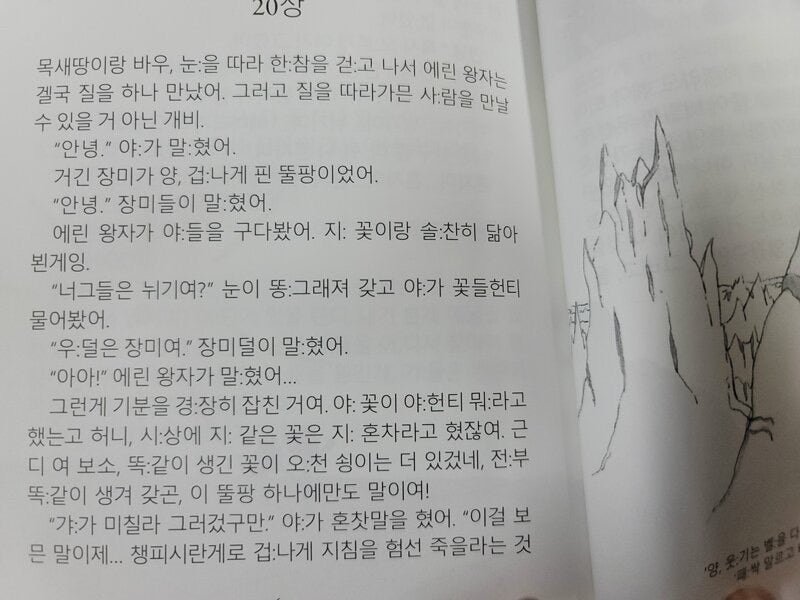 20장
목새땅이랑 바우, 눈:을 따라 한:참을 걷:고 나서 에린 왕자는
겔국 질을 하나 만났어. 그러고 질을 따라가믄 사:람을 만날
수 있을 거 아닌 개비.
“안녕.” 야:가 말:혔어.
거긴 장미가 양, 겁:나게 핀 뚤팡이었어.
“안녕.” 장미들이 말:혔어.
에린 왕자가 야:들을 구다봤어. 지: 꽃이랑 솔:찬히 닮아
뵌게잉.
“너그들은 뉘기여?” 눈이 똥:그래져 갖고 야:가 꽃들헌티
물어봤어.
“우:덜은 장미여.” 장미덜이 말:혔어.
“아아!” 에린 왕자가 말:혔어...
그런게 기분을 경:장히 잡친 거여. 야: 꽃이 야:헌티 뭐:라고
했는고 허니, 시:상에 지: 같은 꽃은 지: 혼차라고 혔잖여. 근
디 여 보소, 똑:같이 생긴 꽃이 오:천 싕이는 더 있겄네, 전:부
똑:같이 생겨 갖곤, 이 뚤팡 하나에만도 말이여!
“갸:가 미칠라 그러겄구만.” 야:가 혼찻말을 혔어. “이걸 보
믄 말이제... 챙피시란게로 겁:나게 지침을 험선 죽을라는 것
“양, 웃:기는 별:을 다
패:싹 말르고